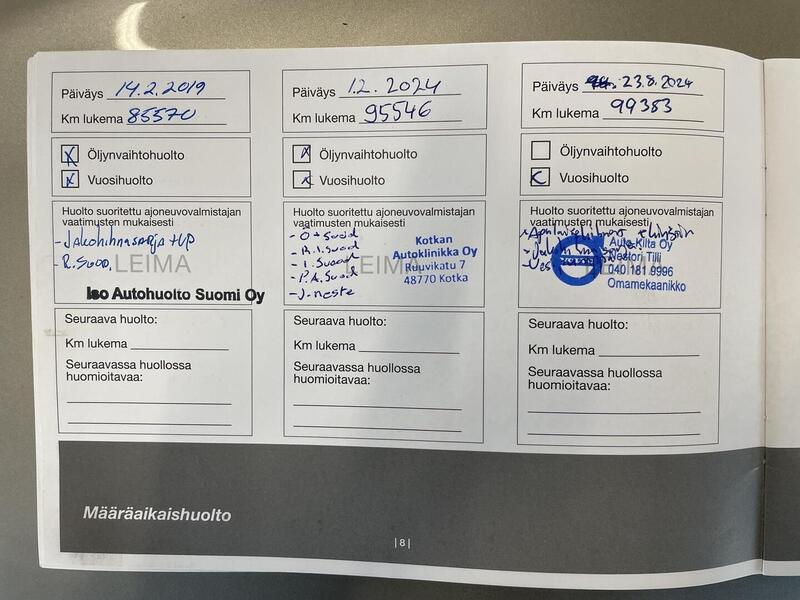 Päiväys 14.2.2019
Km lukema 85570
Öljynvaihtohuolto
Vuosihuolto
Huolto suoritettu ajoneuvovalmistajan
vaatimusten mukaisesti
- Jakohihnasarja + VP
- R. Suod.
LEIMA
Iso Autohuolto Suomi Oy
Seuraava huolto:
Km lukema
Seuraavassa huollossa
huomioitavaa:
Päiväys 1.2. 2024
Km lukema 95546
Öljynvaihtohuolto
Vuosihuolto
Huolto suoritettu ajoneuvovalmistajan
vaatimusten mukaisesti
- Ö + Suod
- R.I. Suod
- I. Suod
- P.A. Suod
- J. neste
LEIMA
Kotkan
Autoklinikka Oy
Ruuvikatu 7
48770 Kotka
Seuraava huolto:
Km lukema
Seuraavassa huollossa
huomioitavaa:
Päiväys 23.8.2024
Km lukema 99383
Öljynvaihtohuolto
Vuosihuolto
Huolto suoritettu ajoneuvovalmistajan
vaatimusten mukaisesti
VOLVO
Auto-Kilta Oy
Nestori Tilli
040 181 9996
Omamekaanikko
Seuraava huolto:
Km lukema
Seuraavassa huollossa
huomioitavaa:
Määräaikaishuolto
| 8 |